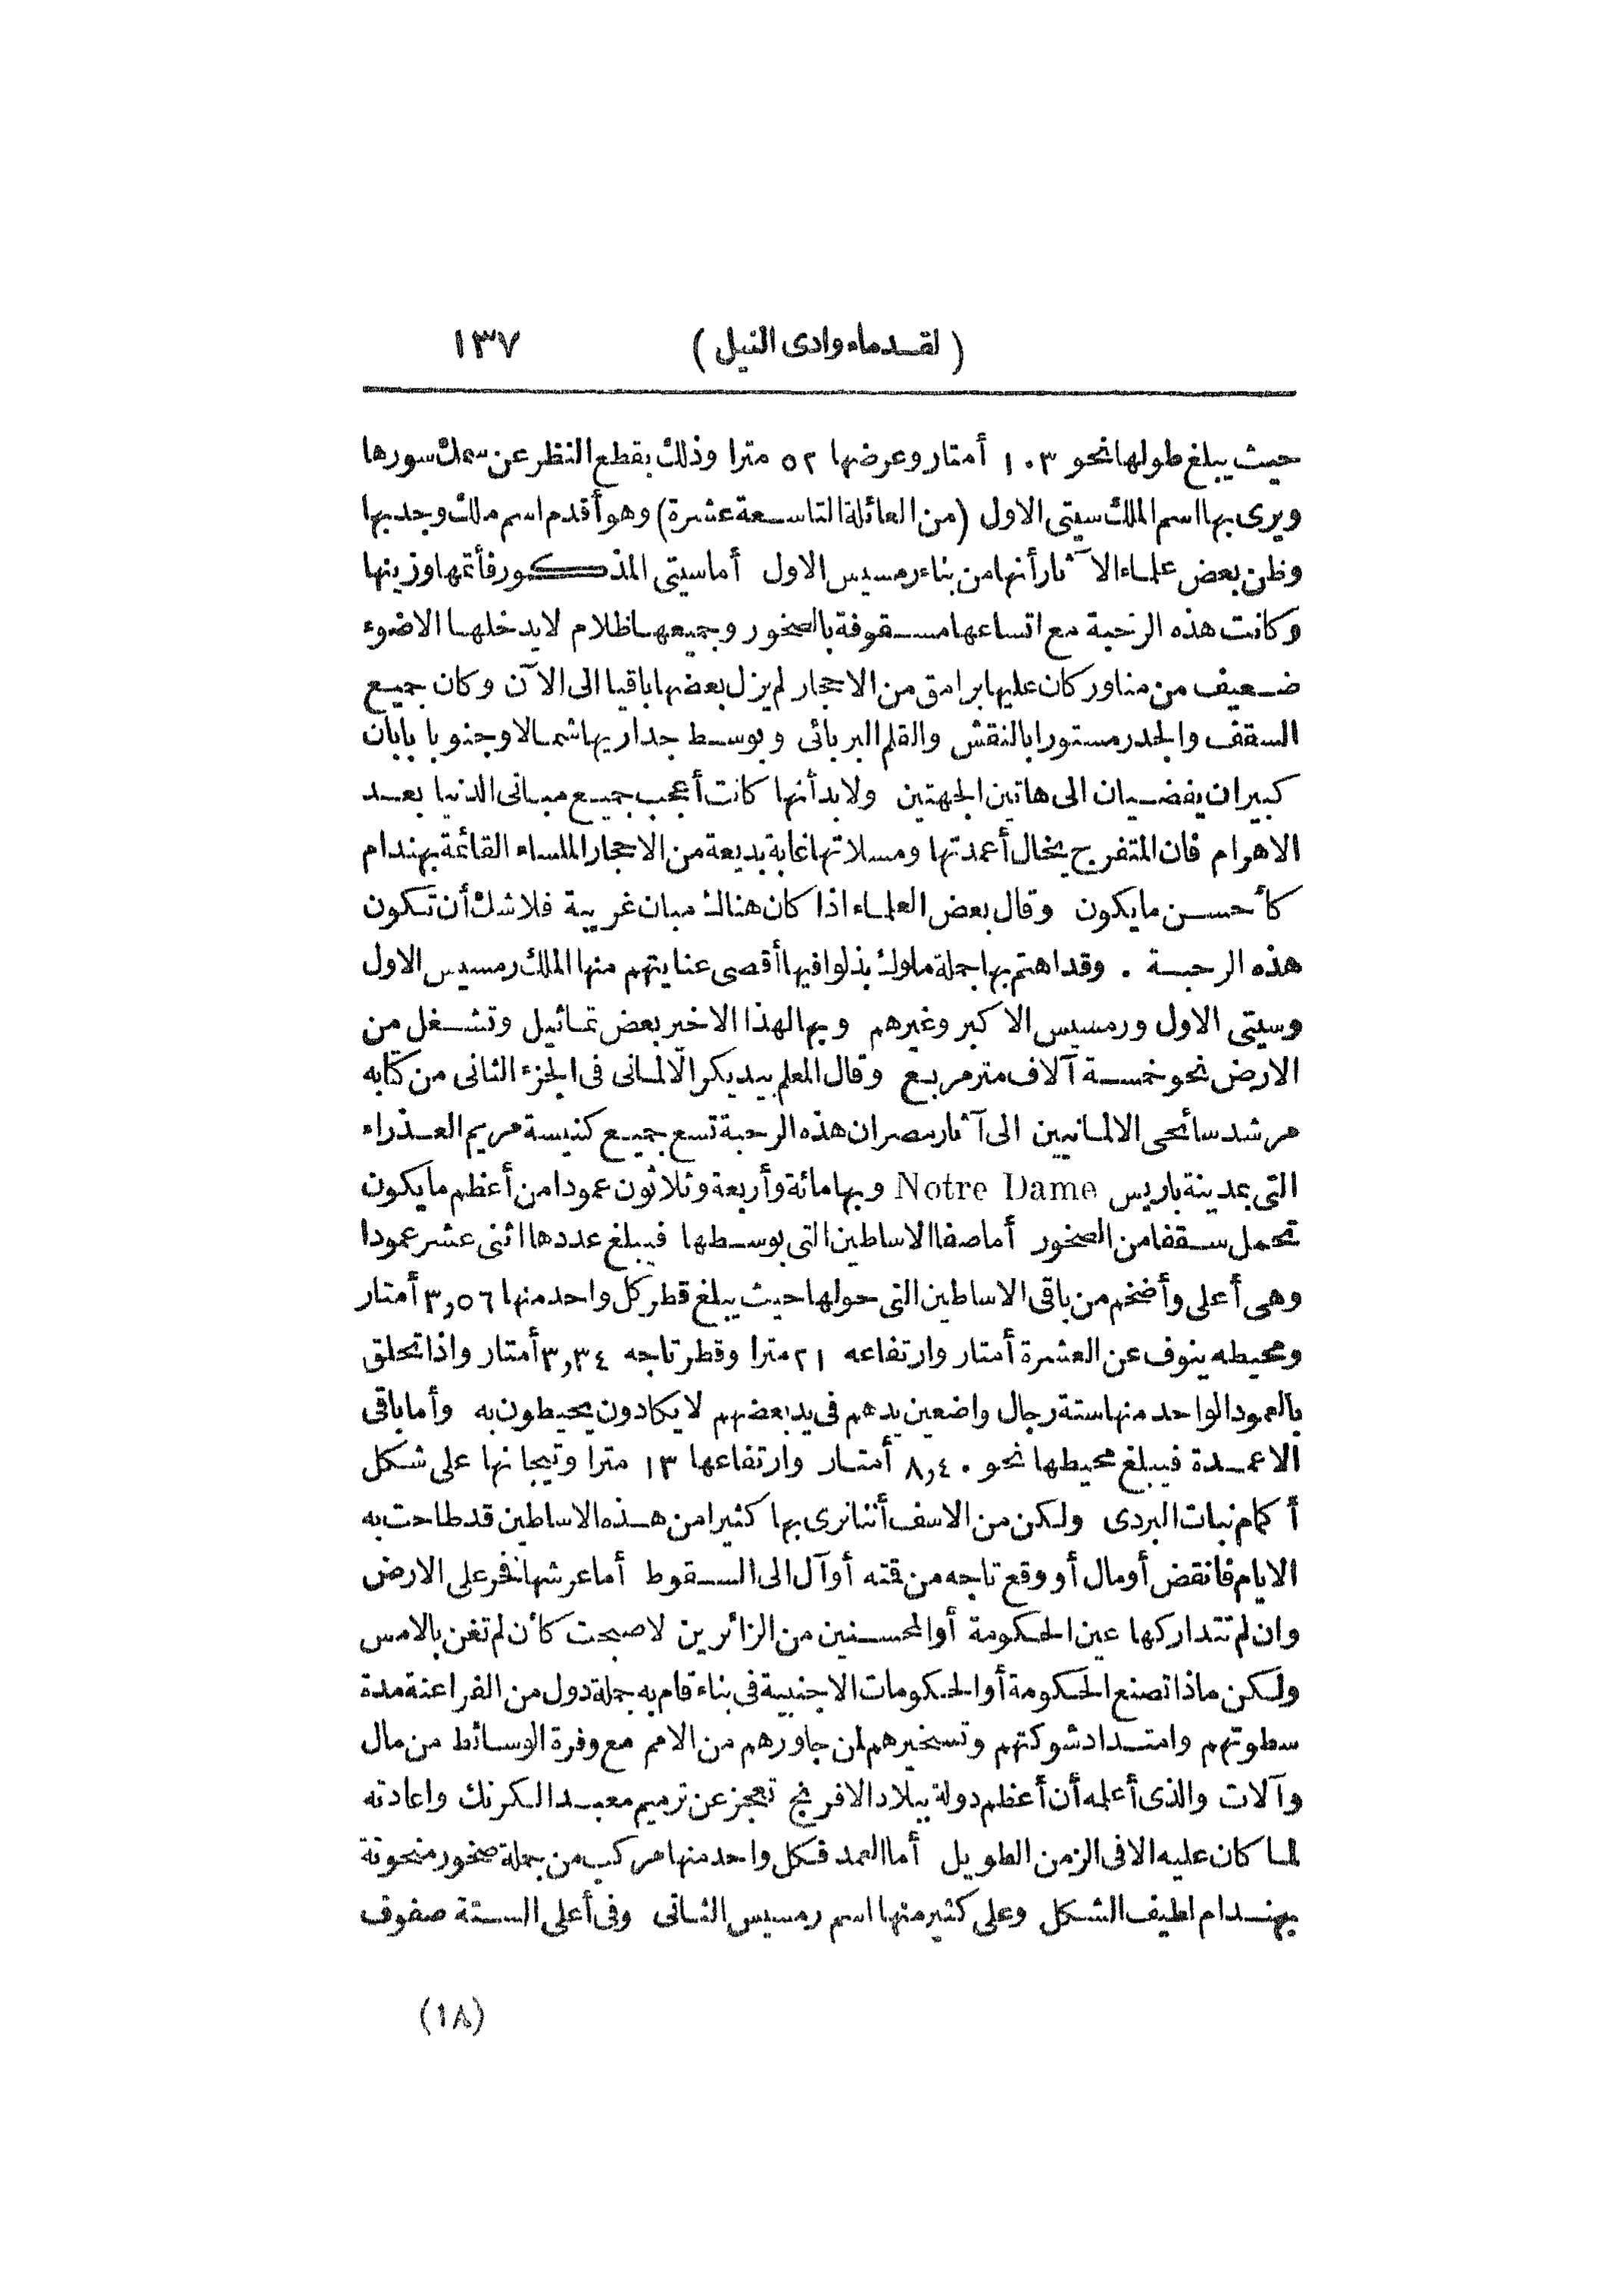 (لقدماء وادى النيل) ١٣٧
حيث يبلغ طولها نحو ١٠٣ أمتار وعرضها ٥٢ مترا وذلك بقطع النظر عن سمك سورها
ويرى بها اسم الملك سيتى الاول (من العائلة التاسعة عشرة) وهو أقدم اسم ملك وجد بها
وظن بعض علماء الآثار أنها من بناء رمسيس الاول أما سيتى المذكور فأتمها وزينها
وكانت هذه الرحبة مع اتساعها مسقوفة بالصخور وجميعها ظلام لا يدخلها الا ضوء
ضعيف من مناور كان عليها برامق من الاحجار لم يزل بعضها باقيا الى الآن وكان جميع
السقف والجدر مستورا بالنقش والقلم البربائى وبوسط جداريها شمالا وجنوبا بابان
كبيران يفضيان الى هاتين الجهتين ولا بد أنها كانت أعجب جميع مبانى الدنيا بعد
الاهرام فان المتفرج يخال أعمدتها ومسلاتها غابة بديعة من الاحجار الملساء القائمة بهندام
كأحسن ما يكون وقال بعض العلماء اذا كان هناك مبان غريبة فلا شك أن تكون
هذه الرحبة . وقد اهتم بها جملة ملوك بذلوا فيها أقصى عنايتهم منها الملك رمسيس الاول
وسيتى الاول ورمسيس الاكبر وغيرهم وبها لهذا الاخير بعض تماثيل وتشغل من
الارض نحو خمسة آلاف متر مربع وقال المعلم بيديكر الالمانى فى الجزء الثانى من كتابه
مرشد سائحى الالمانيين الى آثار مصر ان هذه الرحبة تسع جميع كنيسة مريم العذراء
التى بمدينة باريس Notre Dame وبها مائة وأربعة وثلاثون عمودا من أعظم ما يكون
تحمل سقفا من الصخور أما صفا الاساطين التى بوسطها فيبلغ عددها اثنى عشر عمودا
وهى أعلى وأضخم من باقى الاساطين التى حولها حيث يبلغ قطر كل واحد منها ٣,٥٦ أمتار
ومحيطه ينوف عن العشرة أمتار وارتفاعه ٢١ مترا وقطر تاجه ٣,٣٤ أمتار واذا تحلق
بالعمود الواحد منها ستة رجال واضعين يدهم فى يد بعضهم لا يكادون يحيطون به وأما باقى
الاعمدة فيبلغ محيطها نحو ٨,٤٠ أمتار وارتفاعها ١٣ مترا وتيجانها على شكل
أكمام نبات البردى ولكن من الاسف أننا نرى بها كثيرا من هذه الاساطين قد طاحت به
الايام فانقض أو مال أو وقع تاجه من قمته أو آل الى السقوط أما عرشها فخر على الارض
وان لم تتداركها عين الحكومة أو المحسنين من الزائرين لاصبحت كأن لم تغن بالامس
ولكن ماذا تصنع الحكومة أو الحكومات الاجنبية فى بناء قام به جملة دول من الفراعنة مدة
سطوتهم وامتداد شوكتهم وتسخيرهم لمن جاورهم من الامم مع وفرة الوسائط من مال
وآلات والذى أعلمه أن أعظم دولة ببلاد الافرنج تعجز عن ترميم معبد الكرنك واعادته
لما كان عليه الا فى الزمن الطويل أما العمد فكل واحد منها مركب من جملة صخور منحوتة
بهندام لطيف الشكل وعلى كثير منها اسم رمسيس الثانى وفى أعلى الستة صفوف
(١٨)